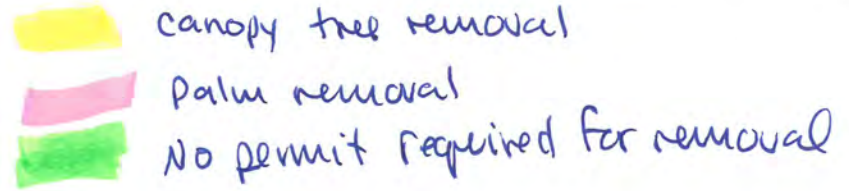 canopy tree removal
Palm removal
No permit required for removal